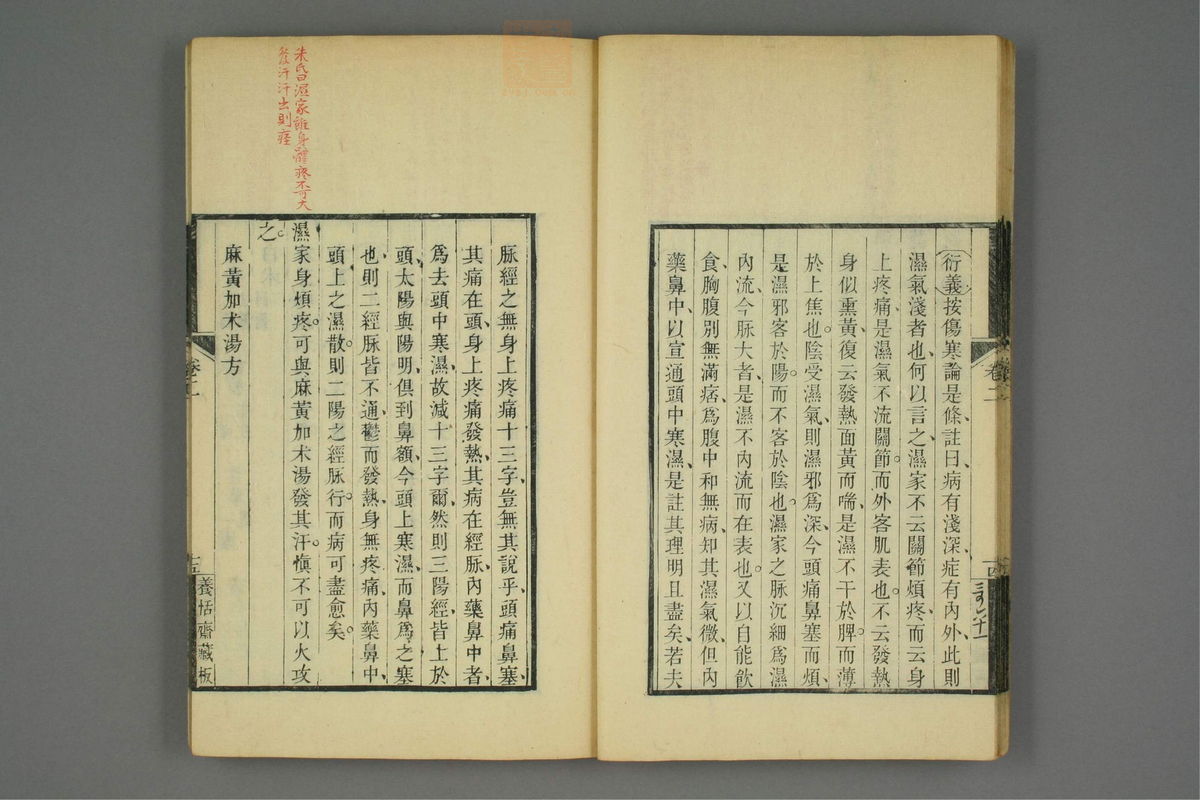 衍義按傷寒論是條、註曰、病有淺深、症有內外、此則
濕氣淺者也、何以言之、濕家不云關節煩疼、而云身
上疼痛、是濕氣不流關節。而外客肌表也。不云發熱
身似熏黃、復云發熱面黃而喘、是濕不干於脾。而薄
於上焦也。陰受濕氣、則濕邪爲深、今頭痛鼻塞而煩、
是濕邪客於陽。而不客於陰也。濕家之脉沉細、爲濕
內流、今脉大者、是濕不內流而在表也。又以自能飲
食、胸腹別無滿痞、爲腹中和無病、知其濕氣微、但內
藥鼻中、以宣通頭中寒濕、是註其理明且盡矣、若夫
卷二
脉經之無身上疼痛十三字、豈無其說乎、頭痛鼻塞、
其痛在頭、身上疼痛發熱、其病在經脉、內藥鼻中者、
爲去頭中寒濕、故減十三字爾、然則三陽經、皆上於
頭、太陽與陽明、俱到鼻額、今頭上寒濕、而鼻爲之塞
也、則二經脉皆不通、鬱而發熱、身無疼痛、內藥鼻中、
頭上之濕散。則二陽之經脉行。而病可盡愈矣。
濕家身煩疼。可與麻黃加朮湯發其汗。愼不可以火攻
之。
麻黃加朮湯方
卷二
十五
養恬齋藏板
朱氏曰濕家雖身體疼不可大
發汗汗出則痙